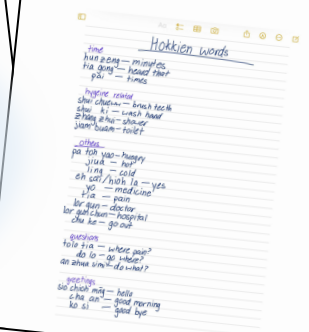 Hokkien words
time
hun zeng — minutes
tia gong — heard that
pai — times
hygiene related
shui chuew — brush teeth
shui ki — wash hand
zhang zhui — shower
jiam buam — toilet
others
pa toh yao — hungry
jiua — hot
ling — cold
eh sai / hioh la — yes
yo — medicine
tia — pain
lor gun — doctor
lor gun chun — hospital
chu ke — go out
question
tolo tia — where pain?
do lo — go where?
an zhua simi — do what?
greetings
hello
cha an — good morning
ko si — good bye